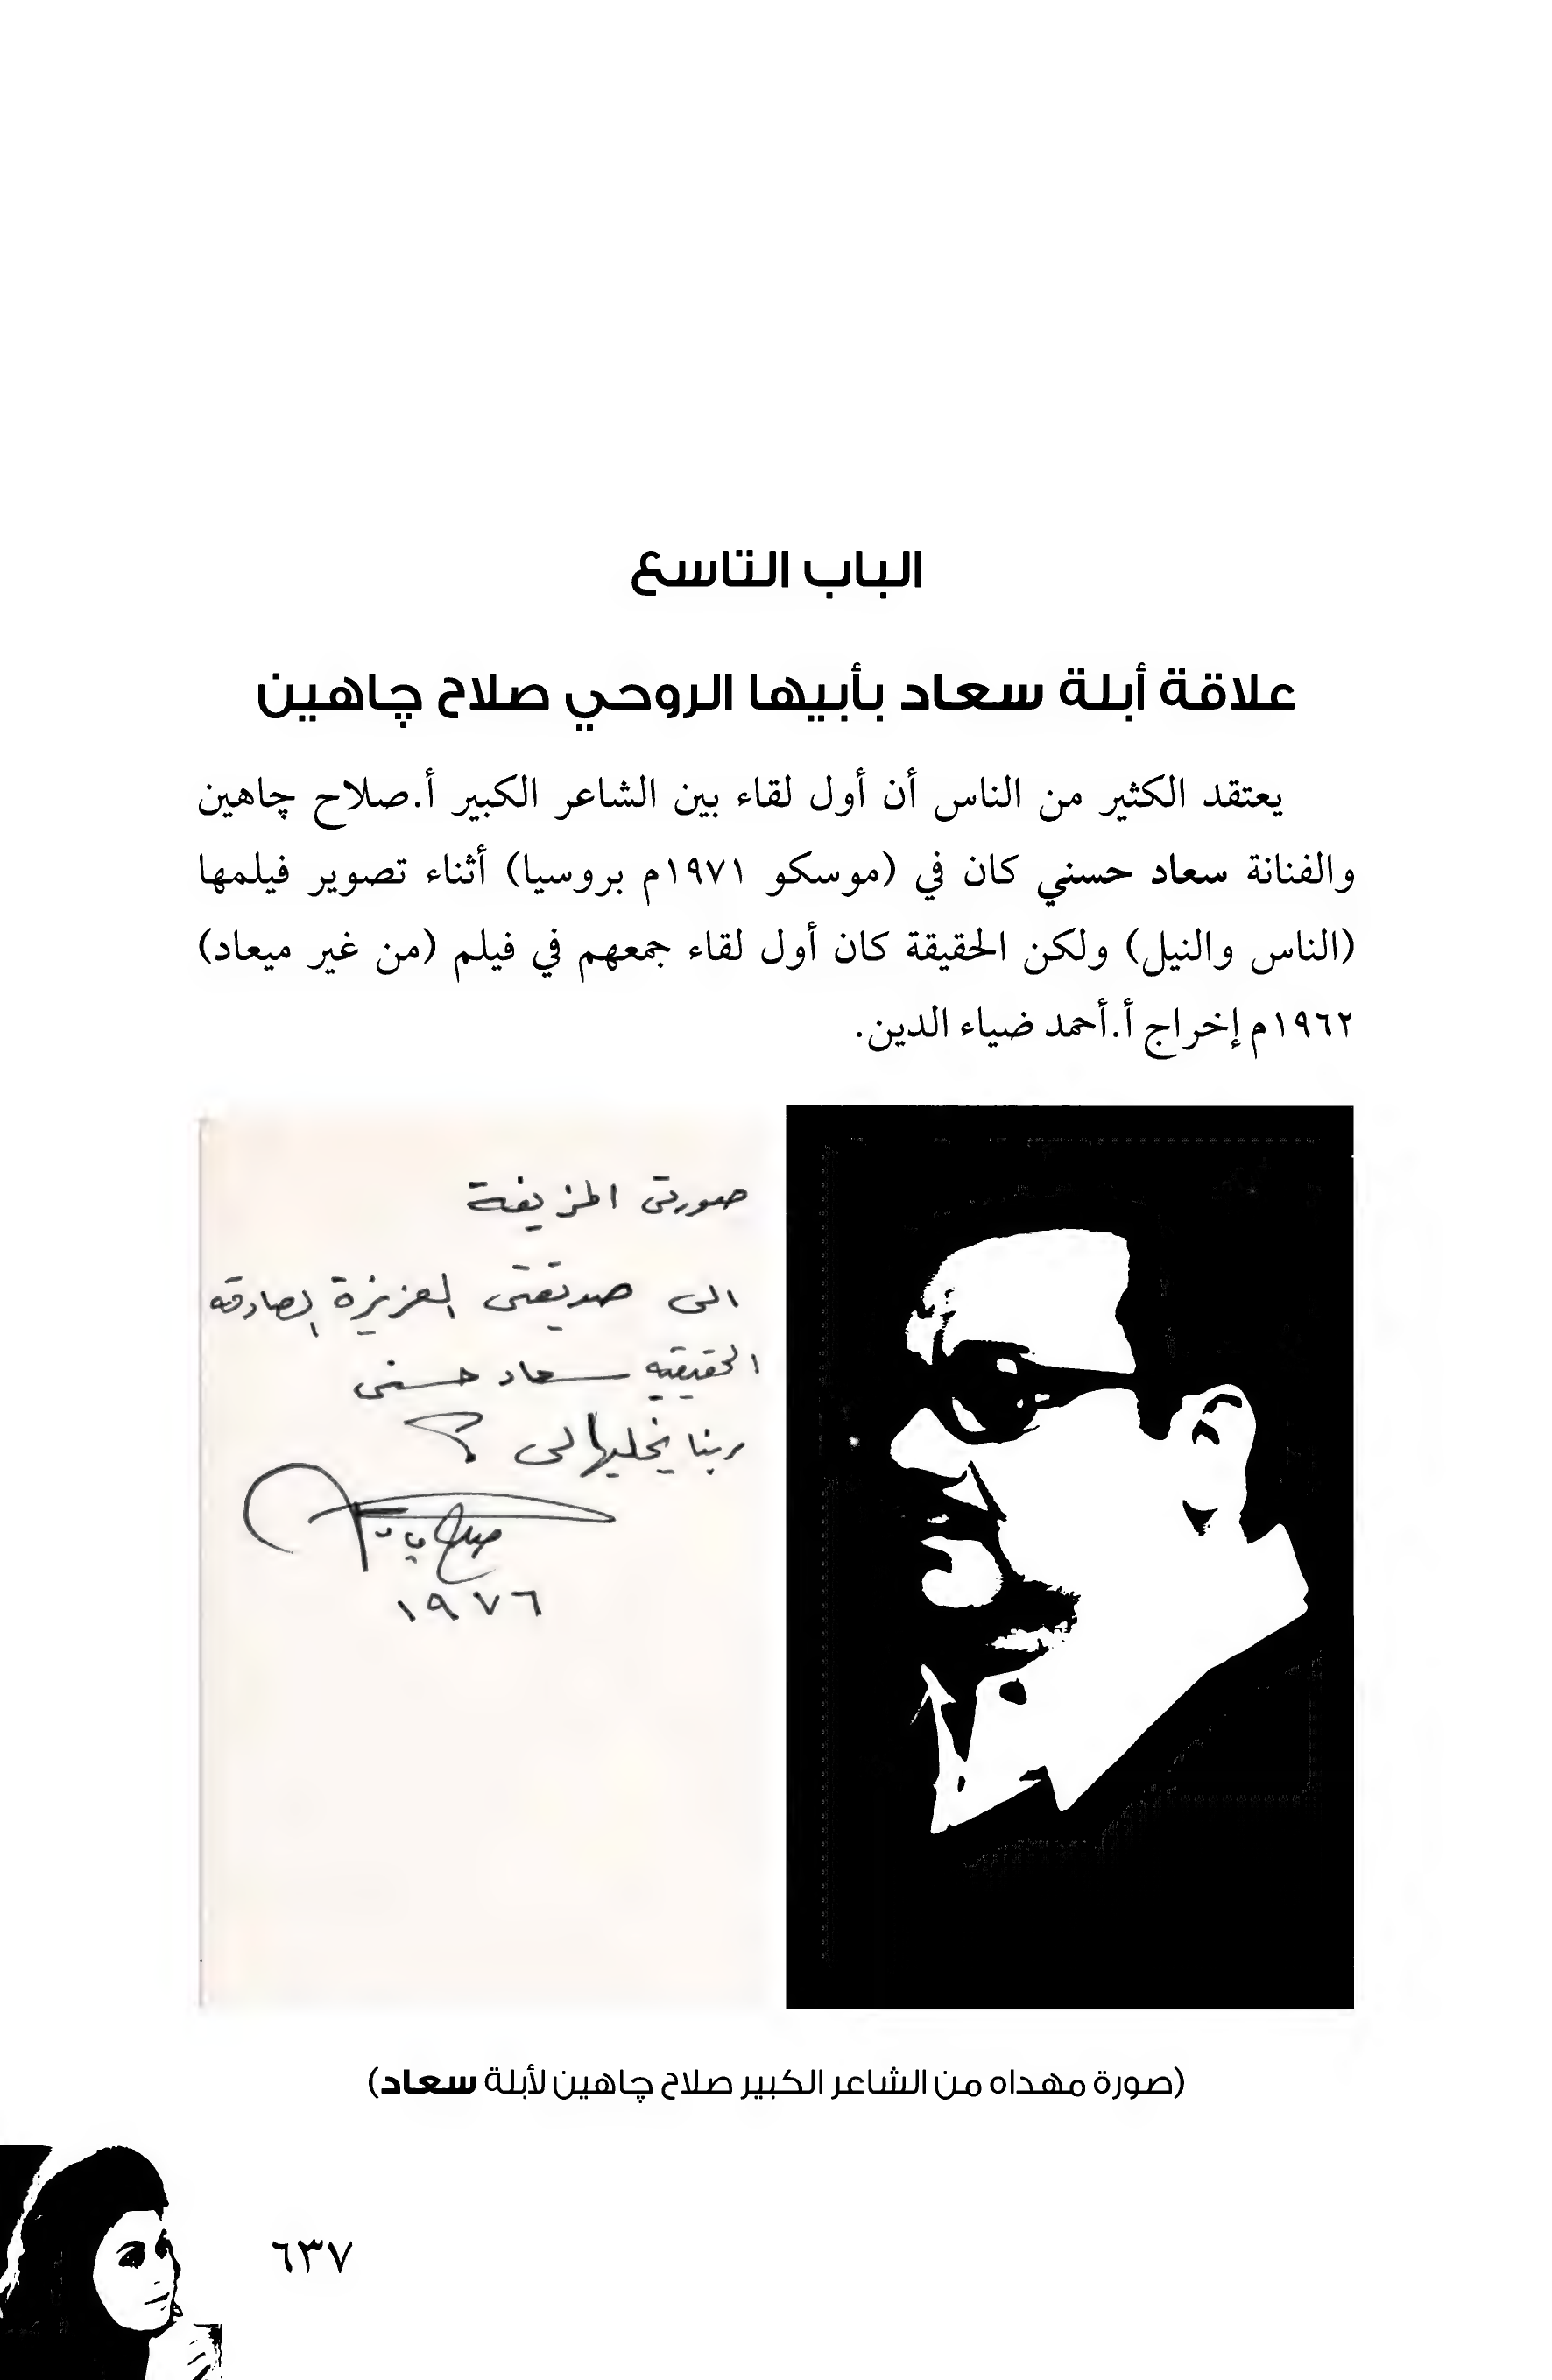 الباب التاسع
علاقة أبلة سعاد بأبيها الروحي صلاح چاهين
يعتقد الكثير من الناس أن أول لقاء بين الشاعر الكبير أ.صلاح چاهين
والفنانة سعاد حسني كان في (موسكو ١٩٧١م بروسيا) أثناء تصوير فيلمها
(الناس والنيل) ولكن الحقيقة كان أول لقاء جمعهم في فيلم (من غير ميعاد)
١٩٦٢م إخراج أ.أحمد ضياء الدين.
صورتى المزيفة
الى صديقتى العزيزة الصادقه
الحقيقيه سعاد حسنى
ربنا يخليها لى
صلاح چاهين
١٩٧٦
(صورة مهداه من الشاعر الكبير صلاح چاهين لأبلة سعاد)
٦٣٧